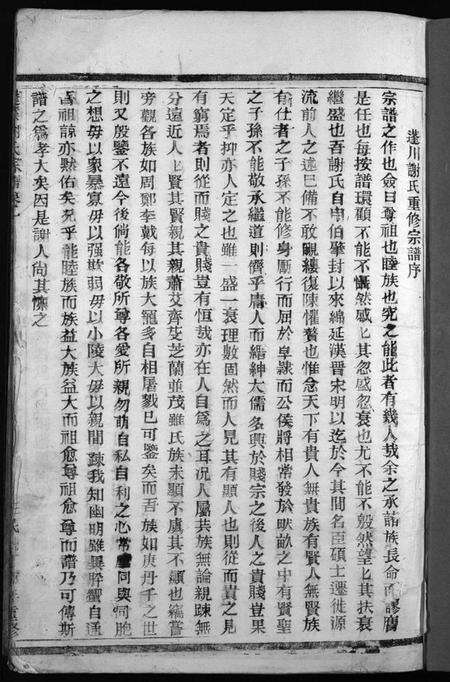 蓬川謝氏重修宗譜序
宗譜之作也僉曰尊祖也睦族也究之能此者有幾人哉余之承諸族長命而謬膺
是任也每按譜環顧不能不慨然感上其忽感忽衰也尤不能不殷然望上其扶衰
繼盛也吾謝氏自申伯肇封以來綿延漢晉宋明以迄於今其間名臣碩士遷徙源
流前人之述已備不敢覼縷復陳惟贅也惟念天下有貴人無貴族有賢人無賢族
有仕者之子孫不能修身厲行而屈於皁隸而公侯將相常發於畎畝之中有賢聖
之子孫不能敬承繼道則儕乎庸人而縉紳大儒多興於賤宗之後人之貴賤豈果
天定乎抑亦人定之也雖一盛一衰理數固然而人見其有顯人也則從而貴之見
有窮焉者則從而賤之貴賤豈有恒哉亦在人自為之耳况人屬共族無論親踈無
分遠近人上賢其賢親其親蕭艾齊芟芝蘭並茂雖氏族未顯不虞其不顯也竊嘗
旁觀各族如周鄭李戴每以族大寵多自相屠戮已可鑒矣而吾族如庚丹千之世
則又殷鑒不遠今後倘能各敬所尊各愛所親勿萌自私自利之心常 同與同胞
之想毋以衆暴寡毋以强欺弱毋以小陵大毋以親間踈我知幽明雖異肸蠁自通
吾祖諒亦默佑矣况乎能睦族而族益大族益大而祖愈尊祖愈尊而譜乃可傳斯
譜之為孝大矣因是謝人尚其慎之
謝氏宗譜卷
重修